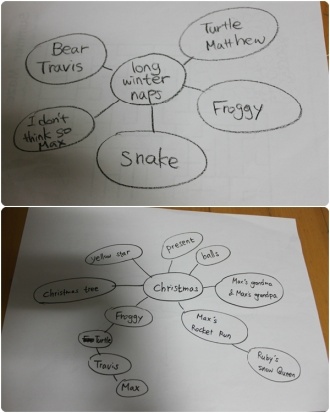 Turtle
Matthew
Bear
Travis
long
winter
naps
Froggy
I don't
think so
Max
Snake
present
yellow star
balls
Christmas tree
Christmas
Max's grandma
& Max's grandpa
Froggy
Max's
Rocket Run
Turtle
Travis
Ruby's
Snow Queen
Max